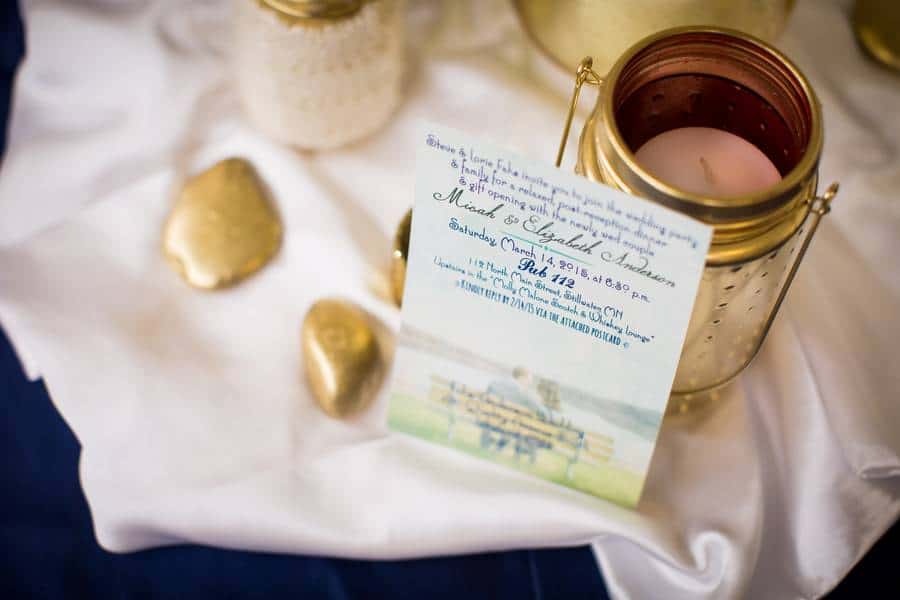 Steve & Lorie Fake invite you to join the wedding party
& family for a relaxed, post-reception dinner
& gift opening with the newly wed couple
Micah & Elizabeth Anderson
Saturday, March 14, 2015, at 6:30 p.m.
Pub 112
112 North Main Street, Stillwater, MN
Upstairs in the "Molly Malone Scotch & Whiskey Lounge"
KINDLY REPLY BY 2/14/15 VIA THE ATTACHED POSTCARD